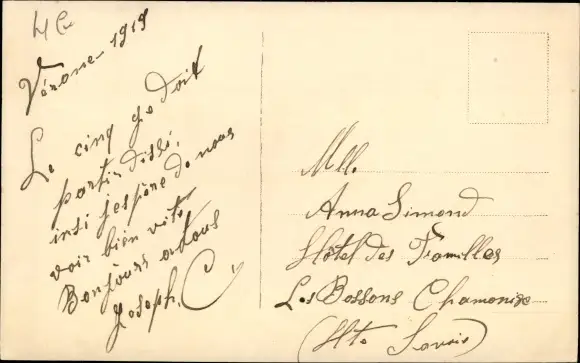 Vérone 1919
Le cinq je doit
partir d'isi,
insi j'espère de nous
voir bien vite
Bonjours a tous
Joseph. C
Mlle.
Anna Simond
Hôtel des Familles
Les Bossons Chamonix
(Hte Savoie)